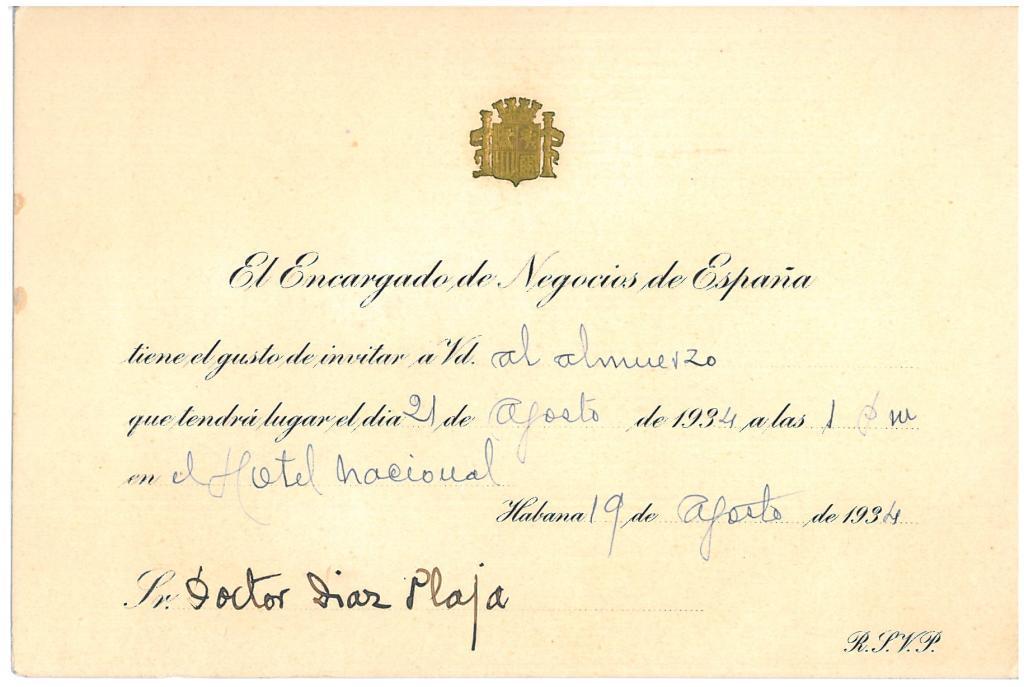 El Encargado de Negocios de España
tiene el gusto de invitar a Vd. al almuerzo
que tendrá lugar el dia 21 de Agosto de 1934 a las 1 p m
en el Hotel nacional
Habana 19 de Agosto de 1934
Sr. Doctor Diaz Plaja
R.S.V.P.